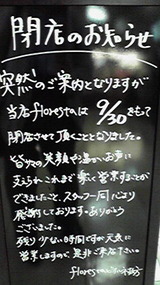 閉店のお知らせ
突然のご案内となりますが
当店florestaは9/30をもって
閉店させて頂くこととなりました。
皆次の笑顔や温かいお声に
支えられこれまで楽しく営業することが
できましたこと、スタッフ一同心より
感謝しております。ありがとう
ございました。
残り少ない時間ですが元気に
営業しますので、是非ご来店下さい。
floresta